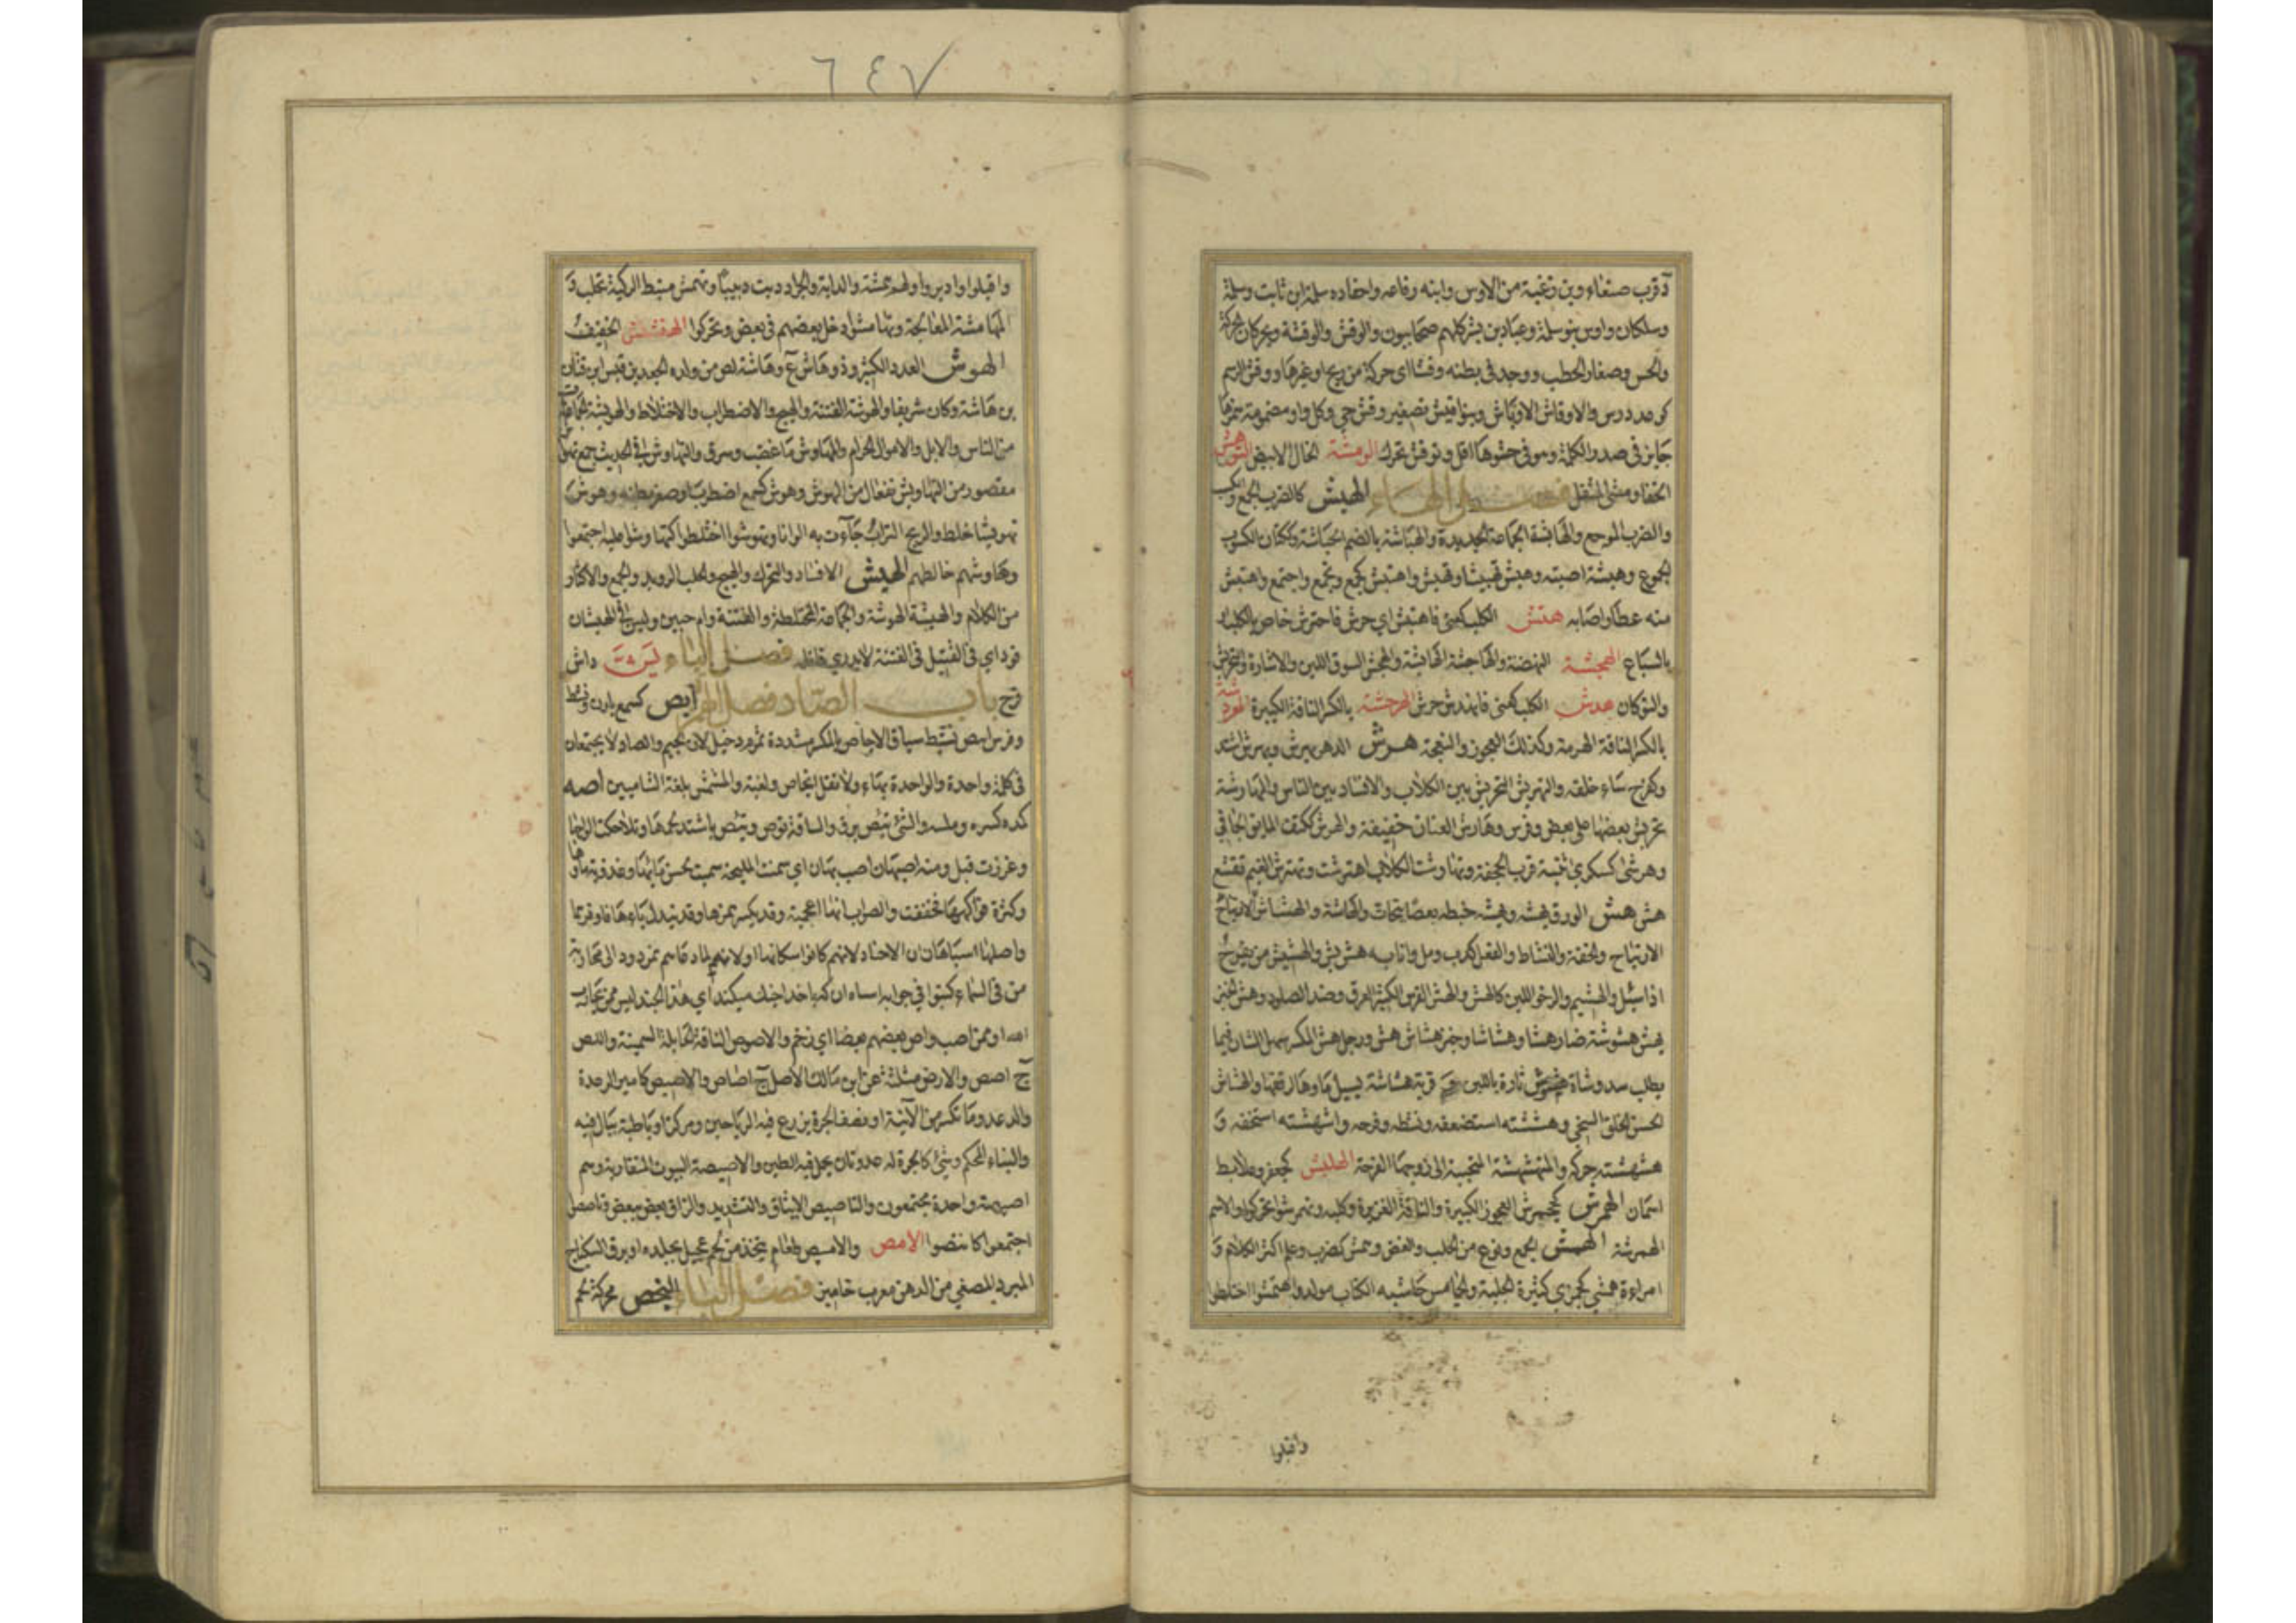 ٦٤٧
د قرب صنعاء وبن زغبة من الاوس وابنه رفاعه واحفاده سلمة ابن ثابت وسلمة
وسلكان واوس بنو سلمة وعباد بن بشر كلهم صحابيون والوقش والوقشة ويحركان الحركة
والحس وصغار الحطب ووجد فى بطنه وقشا اى حركة من ريح او غيرها ووقش الرسم
كوعد درس والاوقاش الاوباش وبنو اقيش تصغير وقش حي وكل واو مضمومة همزها
جايز فى صدر الكلمة وهو فى حشوها اقل وتوقش تحرك الومشة الخال الابيض التوهش
الحفا ومشى المثقل فصل الهاء الهبش كالضرب الجمع والكسب
والضرب الموجع والهابشة الجماعة الجديدة والهباشة بالضم الحباشة وككتان الكسوب
الجموع وهبشة اصبته وهبش تهبيشا وتهبش واهتبش جمع وتجمع واجتمع واهتبش
منه عطاء اصابه هتش الكلب كعنى فاهتتش اي حرش فاحترش خاص بالكلب او
بالسباع الهجشة النهضة والهاجشة الهابشة والهجش السوق اللين والاشارة والتحريش
والتوكان هدش الكلب كعنى فانهدش حرش الهرجشة بالكسر الناقة الكبيرة الهردشة
بالكسر الناقة الهرمة وكذلك العجوز والنعجة هرش الدهر يهرش ويهرش اشتد
وكفرح ساء خلقه والتهريش التحريش بين الكلاب والافساد بين الناس والمهارشة
تحريش بعضها على بعض وفرس مهارش العنان خفيفه والهرش ككتف المايق الجافي
وهرشى كسكرى ثنية قرب الجحفة وتهارشت الكلاب اهترشت وتهرش الغيم تقشع
هش هش الورق يهشه ويهشه خبطه بعصا ليتحات والهاشة والهشاش الارتياح
الارتياح والخفة والنشاط والفعل كدب ومل وانا به هش بش والهشيش من يفرح
اذا سئل والهشيم والرخو اللين كالهش والهش الفرس الكثير العرق وضد الصلود وهش الخبز
يهش هشوشة صار هشا وهشاشا وخبز هشاش هش ورجل هش المكسر سهل الشان فيما
يطلب منه وشاة هشوش ثارة باللبن قربة هشاشة يسيل ماوها لرقتها والهشاش
الحسن الخلق السخي وهششته استضعفه ونشطه وفرحه واستهشه استخفه و
هشهشته حركه والمتهشهشة المتحببة الى زوجها الفرحة الهلبش كجعفر وعلابط
اسمان الهمرش كجحمرش العجوز الكبيرة والناقة الغزيرة وكلبه وتهمرشوا تحركوا والاسم
الهمرشة الهمش الجمع ونوع من الحلب والعض وهمش كضرب وعلم اكثر الكلام و
امراءة همشى كجمزى كثيرة الجلبة والهامش حاشية الكتاب مولد واهتمشوا اختلطوا
واقبلوا
واقبلوا وادبروا ولهم همشة والدابة والجراد دبت دبيبا وتهمش منبط الركية تحلب و
المهامشة المعالجة وتهامشوا دخل بعضهم فى بعض وتحركوا الهنشنش الخفيف
الهوش العدد الكثير وذو هاش ع وهاشة لص من ولده الجعد بن قيس ابن قنان
بن هاشة وكان شريفا والهوشة الفتنة والهيج والاضطراب والاختلاط والهويشة الجماعة
من الناس والابل والاموال الحرام والمهاوش ما غصب وسرق والتهاوش في الحديث جمع تهواش
مقصور من التهاويش تفعال من الهوش وهوش كسمع اضطرب وصغر بطنه وهوش
تهويشا خلط والريح التراب جآءت به الوانا وتهوشوا اختلطوا كتهاوشوا وعليه اجتمعوا
وهاوشهم خالطهم الهيش الافساد والتحرك والهيج والحلب الرويد والجمع والاكثار
من الكلام والهيشة الهوشة والجماعة المختلطة والفتنة وام حبين وليس فى الهيشات
قود اي فى القتيل فى الفتنة لا يدرى قاتله فصل الياء يش داش
فرح باب الصاد فصل الهمزة ابص كسمع ارن ونشط
وفرس ابوص نشيط سباق الاجاص بالكسر مشددة ثمر م دخيل لان الجيم والصاد لا يجتمعان
فى كلمة واحدة والواحدة بهاء ولا تقل انجاص ولغية والمشمش بلغة الشاميين اصه
كده كسره وملسه والشئ يئص برق والناقة توص وتئص باشتد لحمها وتلاحكت الواحها
وغزرت قبل ومنه اصبهان اصب بهان اي سمنت المليحة سميت لحسن مايها وعذوبة ماوها
وكثرة فواكهها فخففت والصواب انها اعجمية وقد يكسر همزها وقد يبدل باءها فاء فيهما
واصلها اسباهان ان الاجناد لانهم كانوا سكانها او لانهم لما دعاهم نمرود الى محاربة
من فى السماء كتبوا في جوابه اسباه ان نه كه باخدا جنك كند اي هذا الجند ليس ممن يحارب
الله او من اصب واص بعضهم بعضا اي زحم والاصوص الناقة الحائل السمينة واللص
ج اصص والارض مثلثة عن ابن مالك الاصل ج اصاص والاصيص كامير الرعدة
والذعر وما تكسر من الآنية او نصف الجرة يزرع فيه الرياحين ومركن او باطية يبال فيه
والبناء المحكم وشئ كالجرة له عروتان يحمل فيه الطين والاصيصة البيوت المتقاربة وهم
اصيصة واحدة مجتمعون والتاصيص الايثاق والتشديد والزاق بعض ببعض وتاصصوا
اجتمعوا كائتصوا الامص والاميص طعام يتخذ من لحم عجل بجلده او مرق السكباج
المبرد المصفي من الدهن معرب خاميز فصل الباء البخص محركة لحم